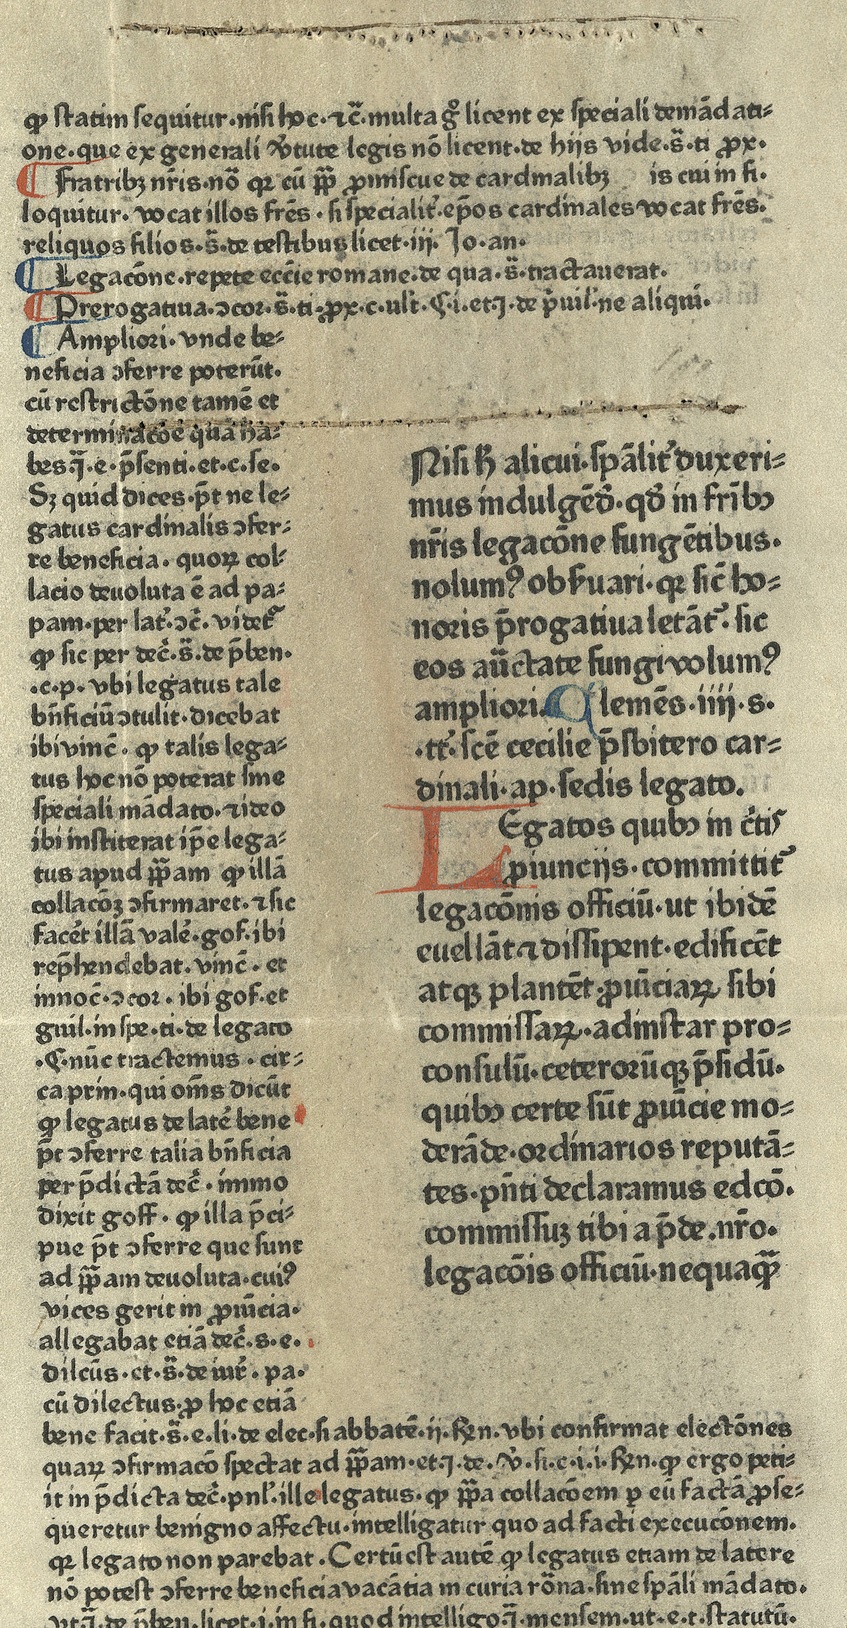 ꝙ statim sequitur·nisi hoc·⁊c̄·multa gͦ licent ex speciali demādati⸗
one·que ex generali v̓tute legis nō licent·de hijs vide·s̄·ti ꝓx·
¶ Fratribꝫ nr̄is·nō qꝛ cū pp̄ ꝓmiscue de cardinalibꝫ is cui in fi·
loquitur·vocat illos fr̄es·si specialit̓·ep̄os cardinales vocat fr̄es·
reliquos filios·s̄·de testibus licet·iij· Jo·an·
¶ Legacōne·repete eccīe romane·de qua·s̄·tractauerat.
¶ Prerogatiua·ɔcor·s̄·ti·ꝓx·c·ult̓·§·i·et·j·de p̓uil̓·ne aliqui·
¶ Ampliori·vnde be⸗
neficia ɔferre poterūt·
cū restrictōne tamē et
determinacōe quā ha⸗
bes·j̄·e·p̄senti·et·c·se·
Sꝫ quid dices·p̄t ne le⸗
gatus cardinalis ɔfer⸗
re beneficia·quoꝝ col⸗
lacio deuoluta ē ad pa⸗
pam·per lat̓·ɔc̄·videt᷑
ꝙ sic per dec̓·s̄·de p̄ben·
·c·p·vbi legatus tale
bn̄ficiū ɔtulit·dicebat
ibi vinc̄·ꝙ talis lega⸗
tus hoc nō poterat sine
speciali mādato·⁊ ideo
ibi institerat ip̄e lega⸗
tus apud pp̄am ꝙ illā
collacōꝫ ɔfirmaret·⁊ sic
facēt illā valē·gof·ibi
rep̄hendebat·vinc̄·et
innoc̄·ɔcor·ibi gof·et
guil·in spe·ti·de legato
·§·nūc tractemus·cir⸗
ca prin·qui om̄s dicūt
ꝙ legatus de latē bene
p̄t ɔferre talia bn̄ficia
per p̄dictā dec̓·immo
dixit goff·ꝙ illa p̄ci⸗
pue p̄t ɔferre que sunt
ad pp̄am deuoluta·cui⁹
vices gerit in ꝓuīcia·
allegabat etiā dec̓·s·e·
dilc̄us·et·s̄·de iur̄·pa·
cū dilectus·ꝓ hoc etiā
bene facit·s̄·e·li·de elec·si abbatē·ij·Rn̄·vbi confirmat electōnes
quaꝝ ɔfirmacō spectat ad pp̄am·et·j·de·v̓·si·c·i·i·Rn̄·ꝙ ergo peti⸗
it in p̄dicta dec̓·pnl̓·ille legatus·ꝙ pp̄a collacōem ꝑ eū factā ꝓse⸗
queretur benigno affectu·intelligatur quo ad facti execucōnem·
qꝛ legato non parebat·Certū est autē ꝙ legatus etiam de latere
nō potest ɔferre beneficia vacātia in curia rōna·sine sp̄ali mādato·
vt·j̄·de p̄ben·licet·i·in fi·quod intelligo·j̄·mensem·ut·e·t·statutū·
Nisi hͦ alicui·sp̄alit̓ duxeri⸗
mus indulgēd̓·qd̓ in fr̄ibꝰ
nr̄is legacōne fungētibus·
nolum⁹ obẜuari·qꝛ sic̄ ho⸗
noris p̄rogatiua letāt᷑·sic
eos auctāte fungi volum⁹
ampliori·Clemēs·iiij·s·
·tt̓·scē cecilie p̄sbitero car⸗
dinali·ap·sedis legato.
LEgatos quibꝰ in c̓tis
ꝓuincijs·committit᷑
legacōnis officiū·ut ibidē
euellāt ⁊ dissipent·edificēt
atqꝫ plantēt·ꝓuīciaꝝ sibi
commissaꝝ·ad instar pro⸗
consulū·ceterorūqꝫ p̄sidū·
quibꝰ certe sūt ꝓuīcie mo⸗
derāde·ordinarios reputā⸗
tes·pn̄ti declaramus edcō·
commissuꝫ tibi a p̄de·nr̄o·
legacōis officiū·nequaqꝫ̄